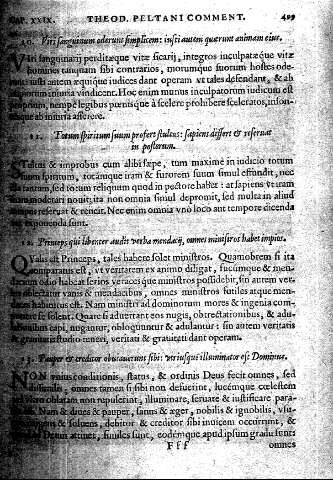 CAP. XXIX. THEOD. PELTANI COMMENT. 409
Viri sanguinum oderunt simplicem: iusti autem quærunt animam eius.
Viri sanguinarij perditæque vitæ sicarij, integros inculpatæque vitæ
homines tanquam sibi contrarios, morumque suorum hostes ode-
iusti autem æquique iudices dant operam vt tales defendant, & ab
iniuria vindicent. Hoc enim munus inculpatorum iudicum est
proprium, nempe legibus pœnisque à scelere prohibere sceleratos, inson-
tesque ab iniuria asserere.
11. Totum spiritum suum profert stultus: sapiens differt & reseruat
in posterum.
Stultus & improbus cum alibi sæpe, tum maximè in iudicio totum
suum spiritum, totamque iram & furorem suum simul effundit, nec
tantum, sed totum reliquum quod in pectore habet: at sapiens vt iram
moderari nouit, ita non omnia simul depromit, sed multa in aliud
tempus reseruat & reticit. Nec enim omnia vno loco aut tempore dicenda
exponenda sunt.
12. Princeps qui libenter audit verba mendacij, omnes ministros habet impios.
Qualis est Princeps, tales habere solet ministros. Quamobrem si ita
comparatus est, vt veritatem ex animo diligat, fucumque & men-
dacium odio habeat serios veracesque ministros possidebit, sin autem ver-
bis oblectatur vanis & mendacibus, omnes ministros futiles atque men-
daces habiturus est. Nam ministri ad dominorum mores & ingenia com-
ponere se solent. Quare si aduertant eos nugis, obtrectationibus, & adu-
lationibus capi, nugantur, obloquuntur & adulantur: sin autem veritatis
& grauitatis studio teneri, veritati & grauitati dant operam.
13. Pauper & creditor obuiauerunt sibi: vtriusque illuminator est Dominus.
NON vnius conditionis, status, & ordinis Deus fecit omnes, sed
omnes tamen si sibi non defuerint, lucémque cœlestem
oblatam non repulerint, illuminare, seruare & iustificare para-
Nam & diues & pauper, sanus & æger, nobilis & ignobilis, vsu-
& soluens, debitor & creditor sibi inuicem occurrint, &
Deum attinet, similes sunt, eodémque apud ipsum gradu sunt:
Fff omnes